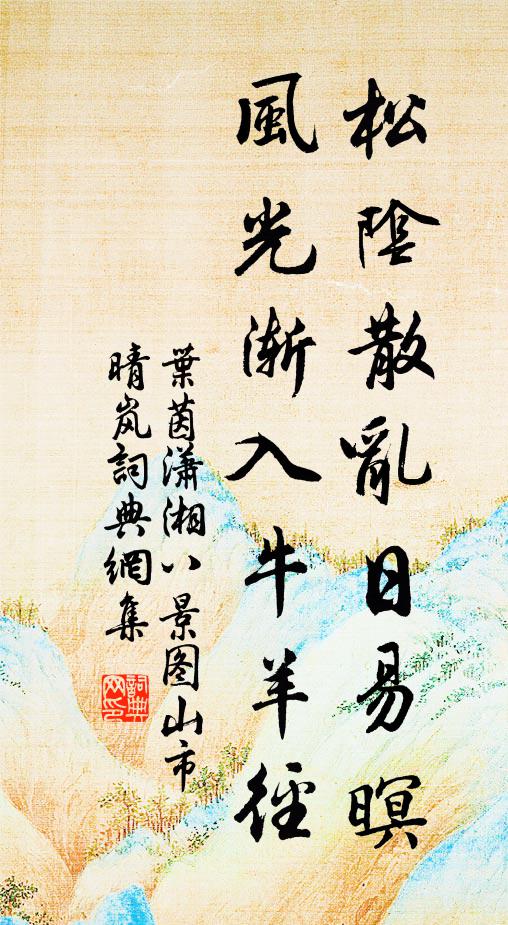 松陰散亂日易暝
風光漸入牛羊徑
葉茵瀟湘八景图山市
晴岚詞典網集
詞典網印